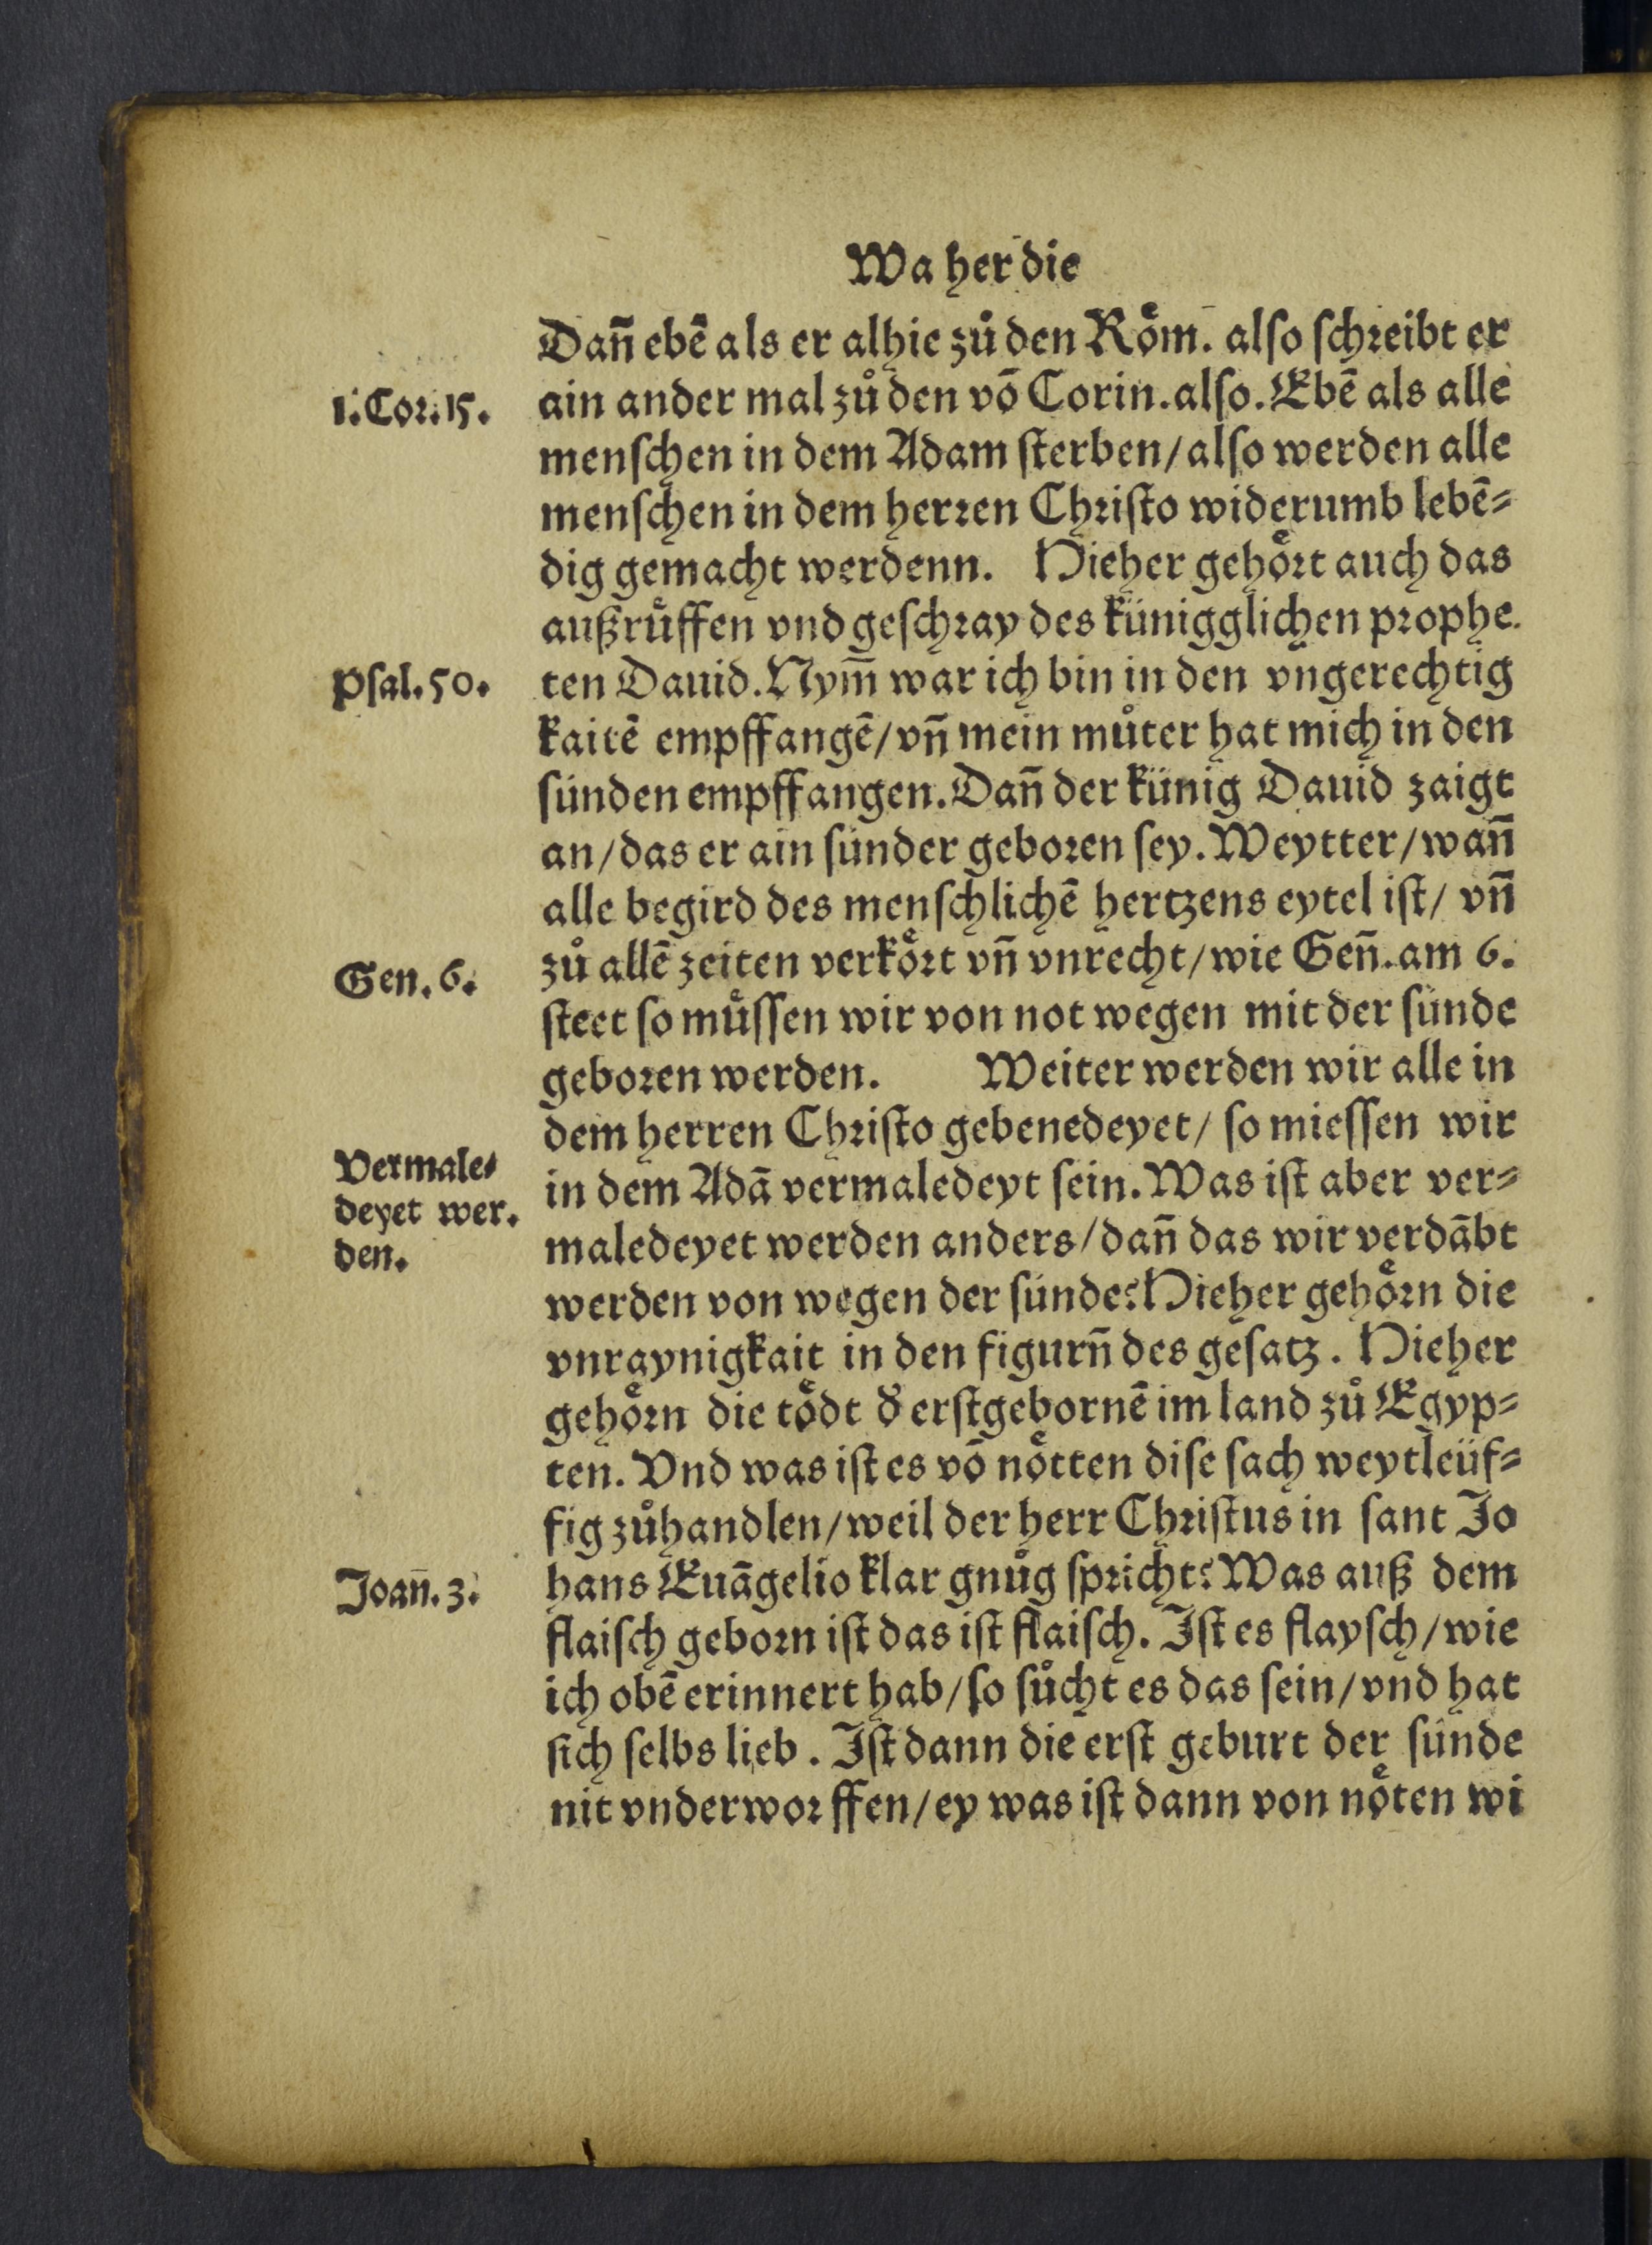 Wa her die
Dañ ebē als er alhie zů den Roͤm. alſo ſchreibt er
1. Cor. 15.
ain ander mal zů den vō Corin. alſo. Ebē als alle
menſchen in dem Adam ſterben / alſo werden alle
menſchen in dem herren Chriſto widerumb lebē⸗
dig gemacht werdenn. Hieher gehoͤrt auch das
außruͤffen vnd geſchray des künigglichen prophe.
Pſal. 50.
ten Dauid. Nym̄ war ich bin in den vngerechtig
kaitē empffangē / vñ mein můter hat mich in den
ſünden empffangen. Dañ der künig Dauid zaigt
an / das er ain ſünder geboren ſey. Weytter / wañ
alle begird des menſchlichē hertzens eytel iſt / vñ
Gen. 6.
zů allē zeiten verkoͤrt vñ vnrecht / wie Geñ. am 6.
ſteet ſo muͤſſen wir von not wegen mit der ſünde
geboren werden. Weiter werden wir alle in
dem herren Chriſto gebenedeyet / ſo mieſſen wir
Vermale⸗
deyet wer.
den.
in dem Adā vermaledeyt ſein. Was iſt aber ver⸗
maledeyet werden anders / dañ das wir verdābt
werden von wegen der ſünde? Hieher gehoͤrn die
vnraynigkait in den figurñ des geſatz. Hieher
gehoͤrn die toͤdt d̕ erſtgebornē im land zů Egyp⸗
ten. Vnd was iſt es vō noͤtten diſe ſach weytleüf⸗
fig zůhandlen / weil der herr Chriſtus in ſant Jo
Joañ. 3.
hans Euāgelio klar gnůg ſpricht? Was auß dem
flaiſch geborn iſt das iſt flaiſch. Iſt es flayſch / wie
ich obē erinnert hab / ſo ſůcht es das ſein / vnd hat
ſich ſelbs lieb. Iſt dann die erſt geburt der ſünde
nit vnderworffen / ey was iſt dann von noͤten wi